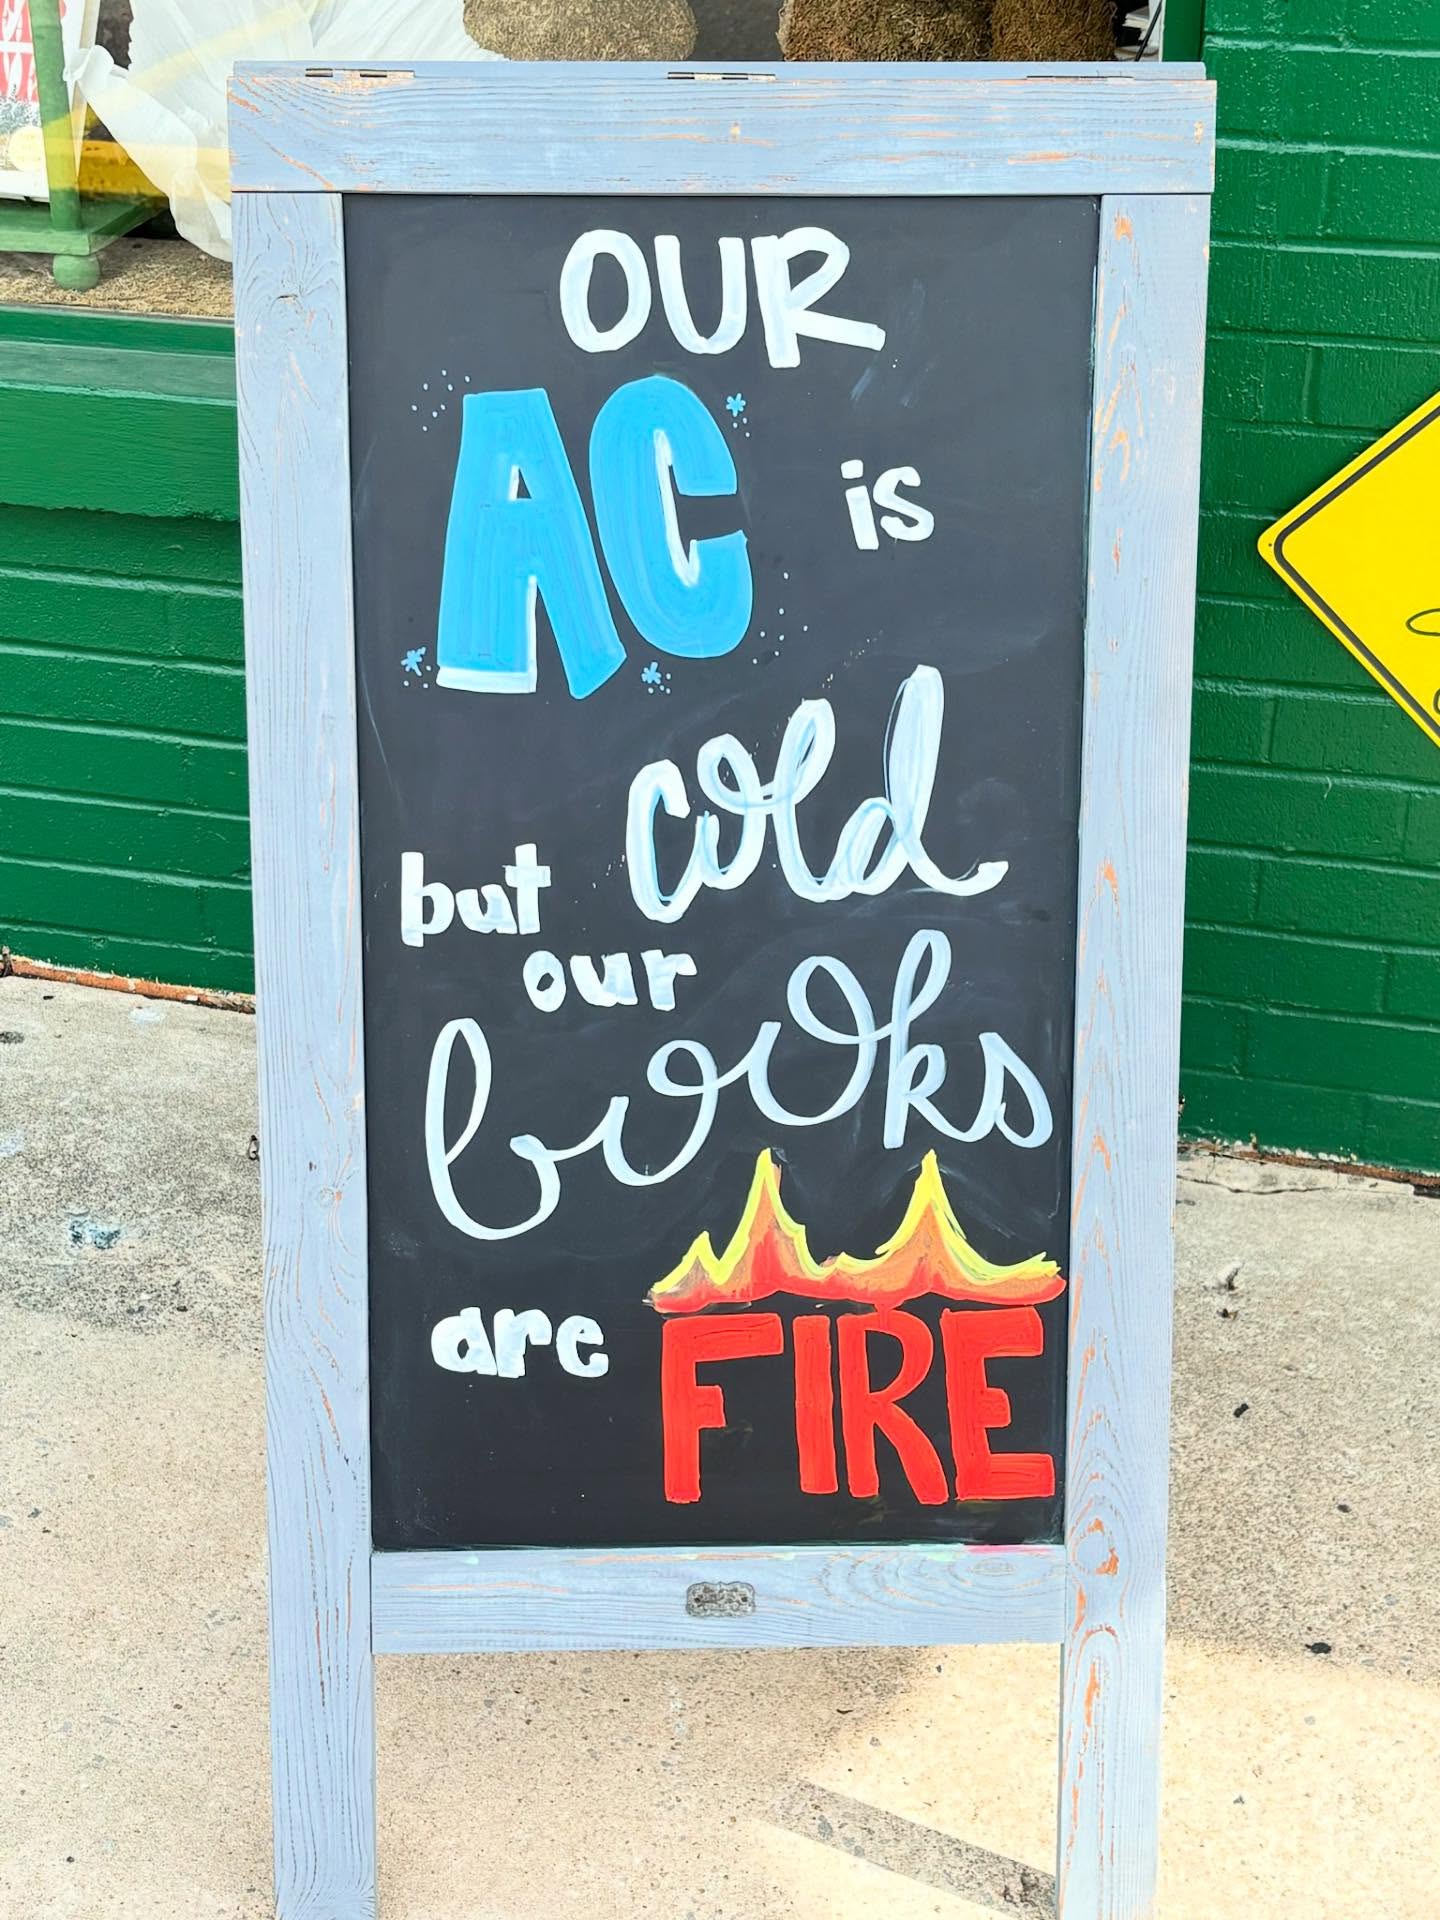 OUR
AC is
cold
but our
books
are FIRE